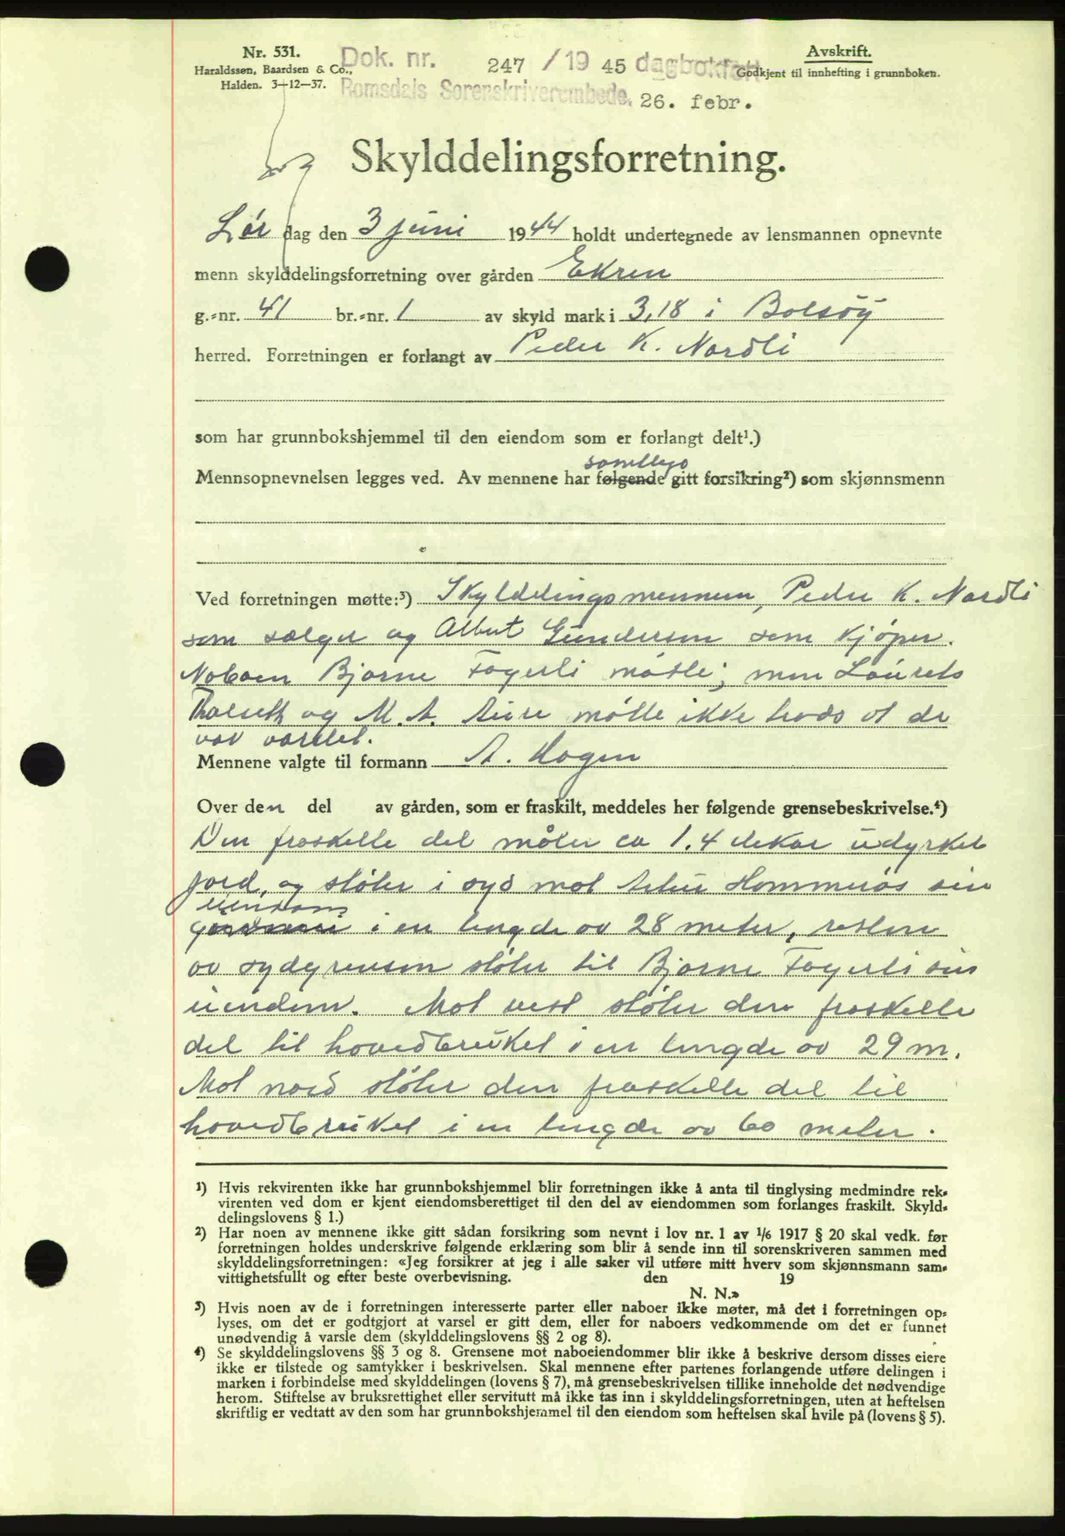 Nr. 531.
Haraldssen, Baardsen & Co.,
Halden. 3—12—37.
Dok. nr. 247 / 19 45 dagbokført
Romsdals Sorenskriverembede. 26. febr.
Avskrift.
Godkjent til innhefting i grunnboken.
Skylddelingsforretning.
Lør dag den 3 juni 1944 holdt undertegnede av lensmannen opnevnte
menn skylddelingsforretning over gården Ekren
g.-nr. 41 br.-nr. 1 av skyld mark i 3,18 i Bolsøy
herred. Forretningen er forlangt av Peder K. Nordli
som har grunnbokshjemmel til den eiendom som er forlangt delt¹.)
samtlige
Mennsopnevnelsen legges ved. Av mennene har følgende gitt forsikring²) som skjønnsmenn
Ved forretningen møtte:³) Skylddelingsmennene, Peder K. Nordli
som sælger og Albert Gundersen som kjøper.
Naboen Bjarne Fagerli møtte; men Laurets
Thalseth og M. A. Aure møtte ikke trods at de
var varslet.
Mennene valgte til formann A. Hagen
Over den del av gården, som er fraskilt, meddeles her følgende grensebeskrivelse.⁴)
Den fraskelte del måler ca 1.4 dekar udyrket
jord, og støter i syd mot Hammerås sin
eiendom
i en lengde av 28 meter, resten
av sydgrensen støter til Bjarne Fagerli sin
eiendom. Mot vest støter den fraskelte
del til hovedbruket i en lengde av 29 m.
Mot nord støter den fraskelte del til
hovedbruket i en lengde av 60 meter.
¹) Hvis rekvirenten ikke har grunnbokshjemmel blir forretningen ikke å anta til tinglysing medmindre rek-
virenten ved dom er kjent eiendomsberettiget til den del av eiendommen som forlanges fraskilt. Skyld-
delingslovens § 1.)
²) Har noen av mennene ikke gitt sådan forsikring som nevnt i lov nr. 1 av 1/6 1917 § 20 skal vedk. før
forretningen holdes underskrive følgende erklæring som blir å sende inn til sorenskriveren sammen med
skylddelingsforretningen: «Jeg forsikrer at jeg i alle saker vil utføre mitt hverv som skjønnsmann sam-
vittighetsfullt og efter beste overbevisning. den 19
N. N.»
³) Hvis noen av de i forretningen interesserte parter eller naboer ikke møter, må det i forretningen op-
lyses, om det er godtgjort at varsel er gitt dem, eller for naboers vedkommende om det er funnet
unødvendig å varsle dem (skylddelingslovens §§ 2 og 8).
⁴) Se skylddelingslovens §§ 3 og 8. Grensene mot naboeiendommer blir ikke å beskrive dersom disses eiere
ikke er tilstede og samtykker i beskrivelsen. Skal mennene efter partenes forlangende utføre delingen i
marken i forbindelse med skylddelingen (lovens § 7), må grensebeskrivelsen tillike inneholde det nødvendige
herom. Stiftelse av bruksrettighet eller servitutt må ikke tas inn i skylddelingsforretningen, uten at heftelsen
skriftlig er vedtatt av den som har grunnbokshjemmel til den eiendom som heftelsen skal hvile på (lovens § 5).